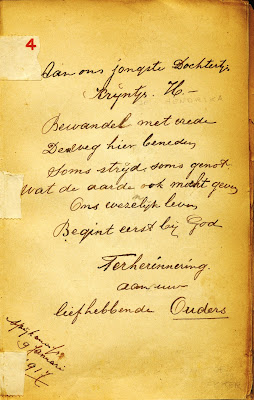 4
Aan ons jongste Dochtertje
Krijntje. H.-
Bewandel met vrede
De weg hier beneden
Soms strijd, soms genot.
Wat de aarde ook mocht geven
Ons wezelijk leven
Begint eerst bij God
Ter herinnering.
aan uw
liefhebbende Ouders
9 Januari
1917